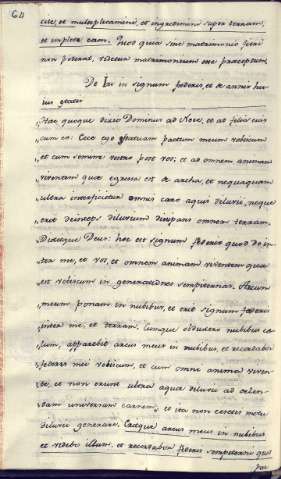 64
cite, et multiplicamini, et ingredimini super terram,
et implete eam. Quod quia sine matrimonio fieri
non poterat, videtur matrimonium esse praeceptum.
De Iri in signum foederis, et de
Haec quoque dixit Dominus ad Noe, et ad filios eius
cum eo: Ecce ego statuam pactum meum vobiscum
et cum semine vestro post vos; et ad omnem animam
viventem quae egressa est de archa, et nequaquam
ultra interficietur omnis caro aquis diluvii, neque
erit deinceps diluvium dissipans omnem terram.
Dixitque Deus: hoc est signum foederis quod do in
ter me, et vos, et omnem animam viventem quae
est vobiscum in generationes sempiternas. Arcum
meum ponam in nubibus, et erit signum foederis
inter me, et terram. Cumque obduxero nubibus cae
lum, apparebit arcus meus in nubibus, et recordabor
foederis mei vobiscum, et cum omni anima viven
te, et non erunt ultra aquae diluvii ad delen
dam universam carnem, et ita non
diluvii generale. Eritque arcus meus in nubibus
et videbo illum, et recordabor foederis sempiterni quod